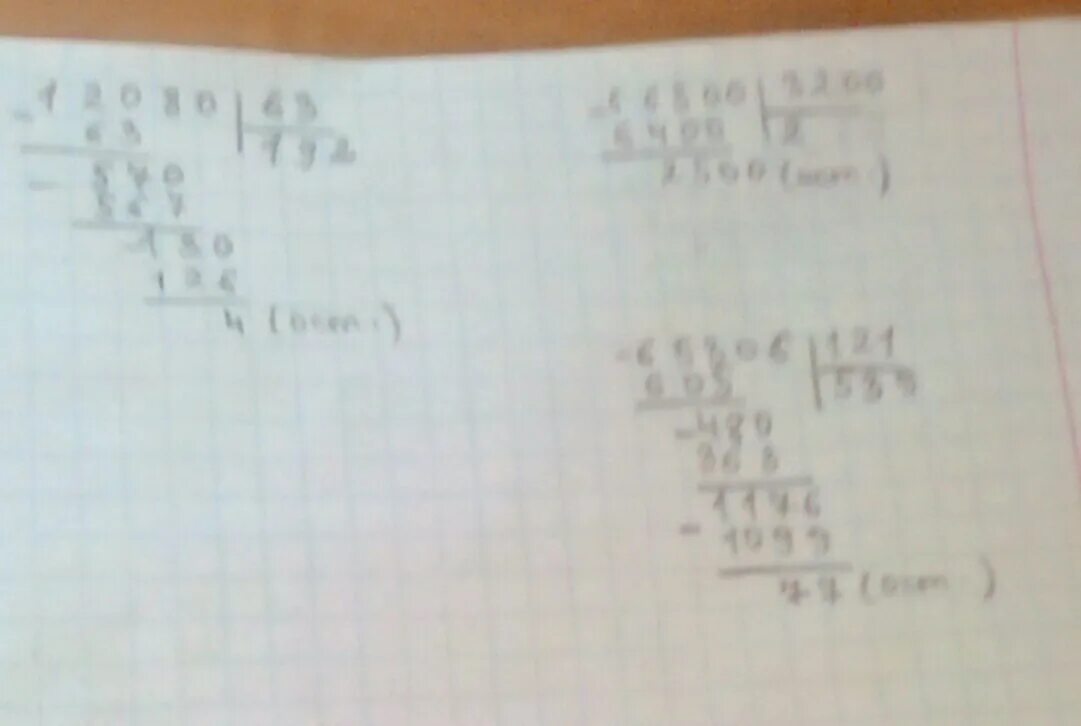 - 12080 | 63
63 192
- 570
567
130
126
4 (ост.)
3200
6400 2
2500 (ост.)
- 65306 | 121
605 539
- 480
363
1176
- 1099
77 (ост.)